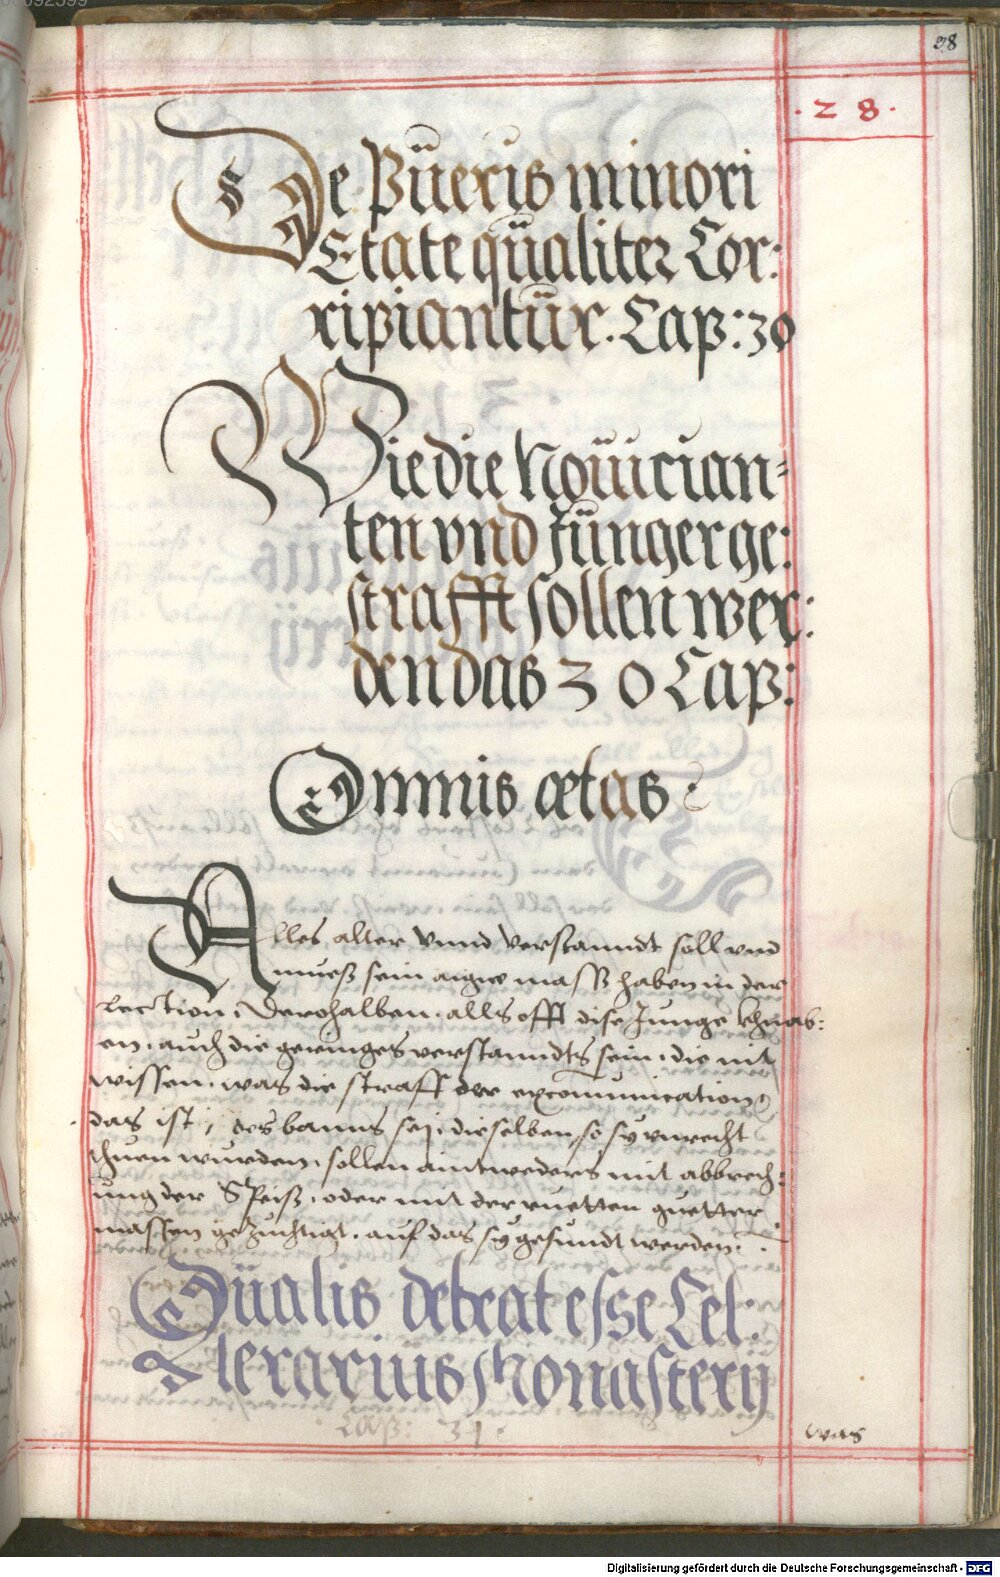 38
. 2 8 .
De Püeris minori
Etate qüaliter Cor:
ripiantür. Cap: 30
Wie die Noüician=
ten vnd Jünger ge:
strafft sollen wer:
den das 30 Cap:
Omnis ætas :
Alles alter vnnd verstanndt soll vnd
mueß sein aigne mass haben in der
lection. Derohalben. alls offt dise Junge khnab:
en. auch die geringes verstanndts sein. die nit
wissen. was die straff der excommunication
das ist, des banns sej. dieselben so sy vnrecht
thuen wurden. sollen aintweders mit abbrech:
ung der Speiß. oder mit der ruetten guetter
massen gezüchtigt. auf das sy gesundt werden.
Qüalis debeat esse Cel:
lerariüs Monasterij
Cap: 31.
was
Digitalisierung gefördert durch die Deutsche Forschungsgemeinschaft - DFG